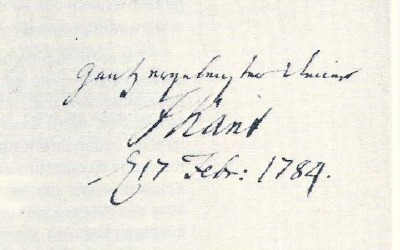 gantz ergebenster Diener
I Kant
d 17 Febr: 1784.